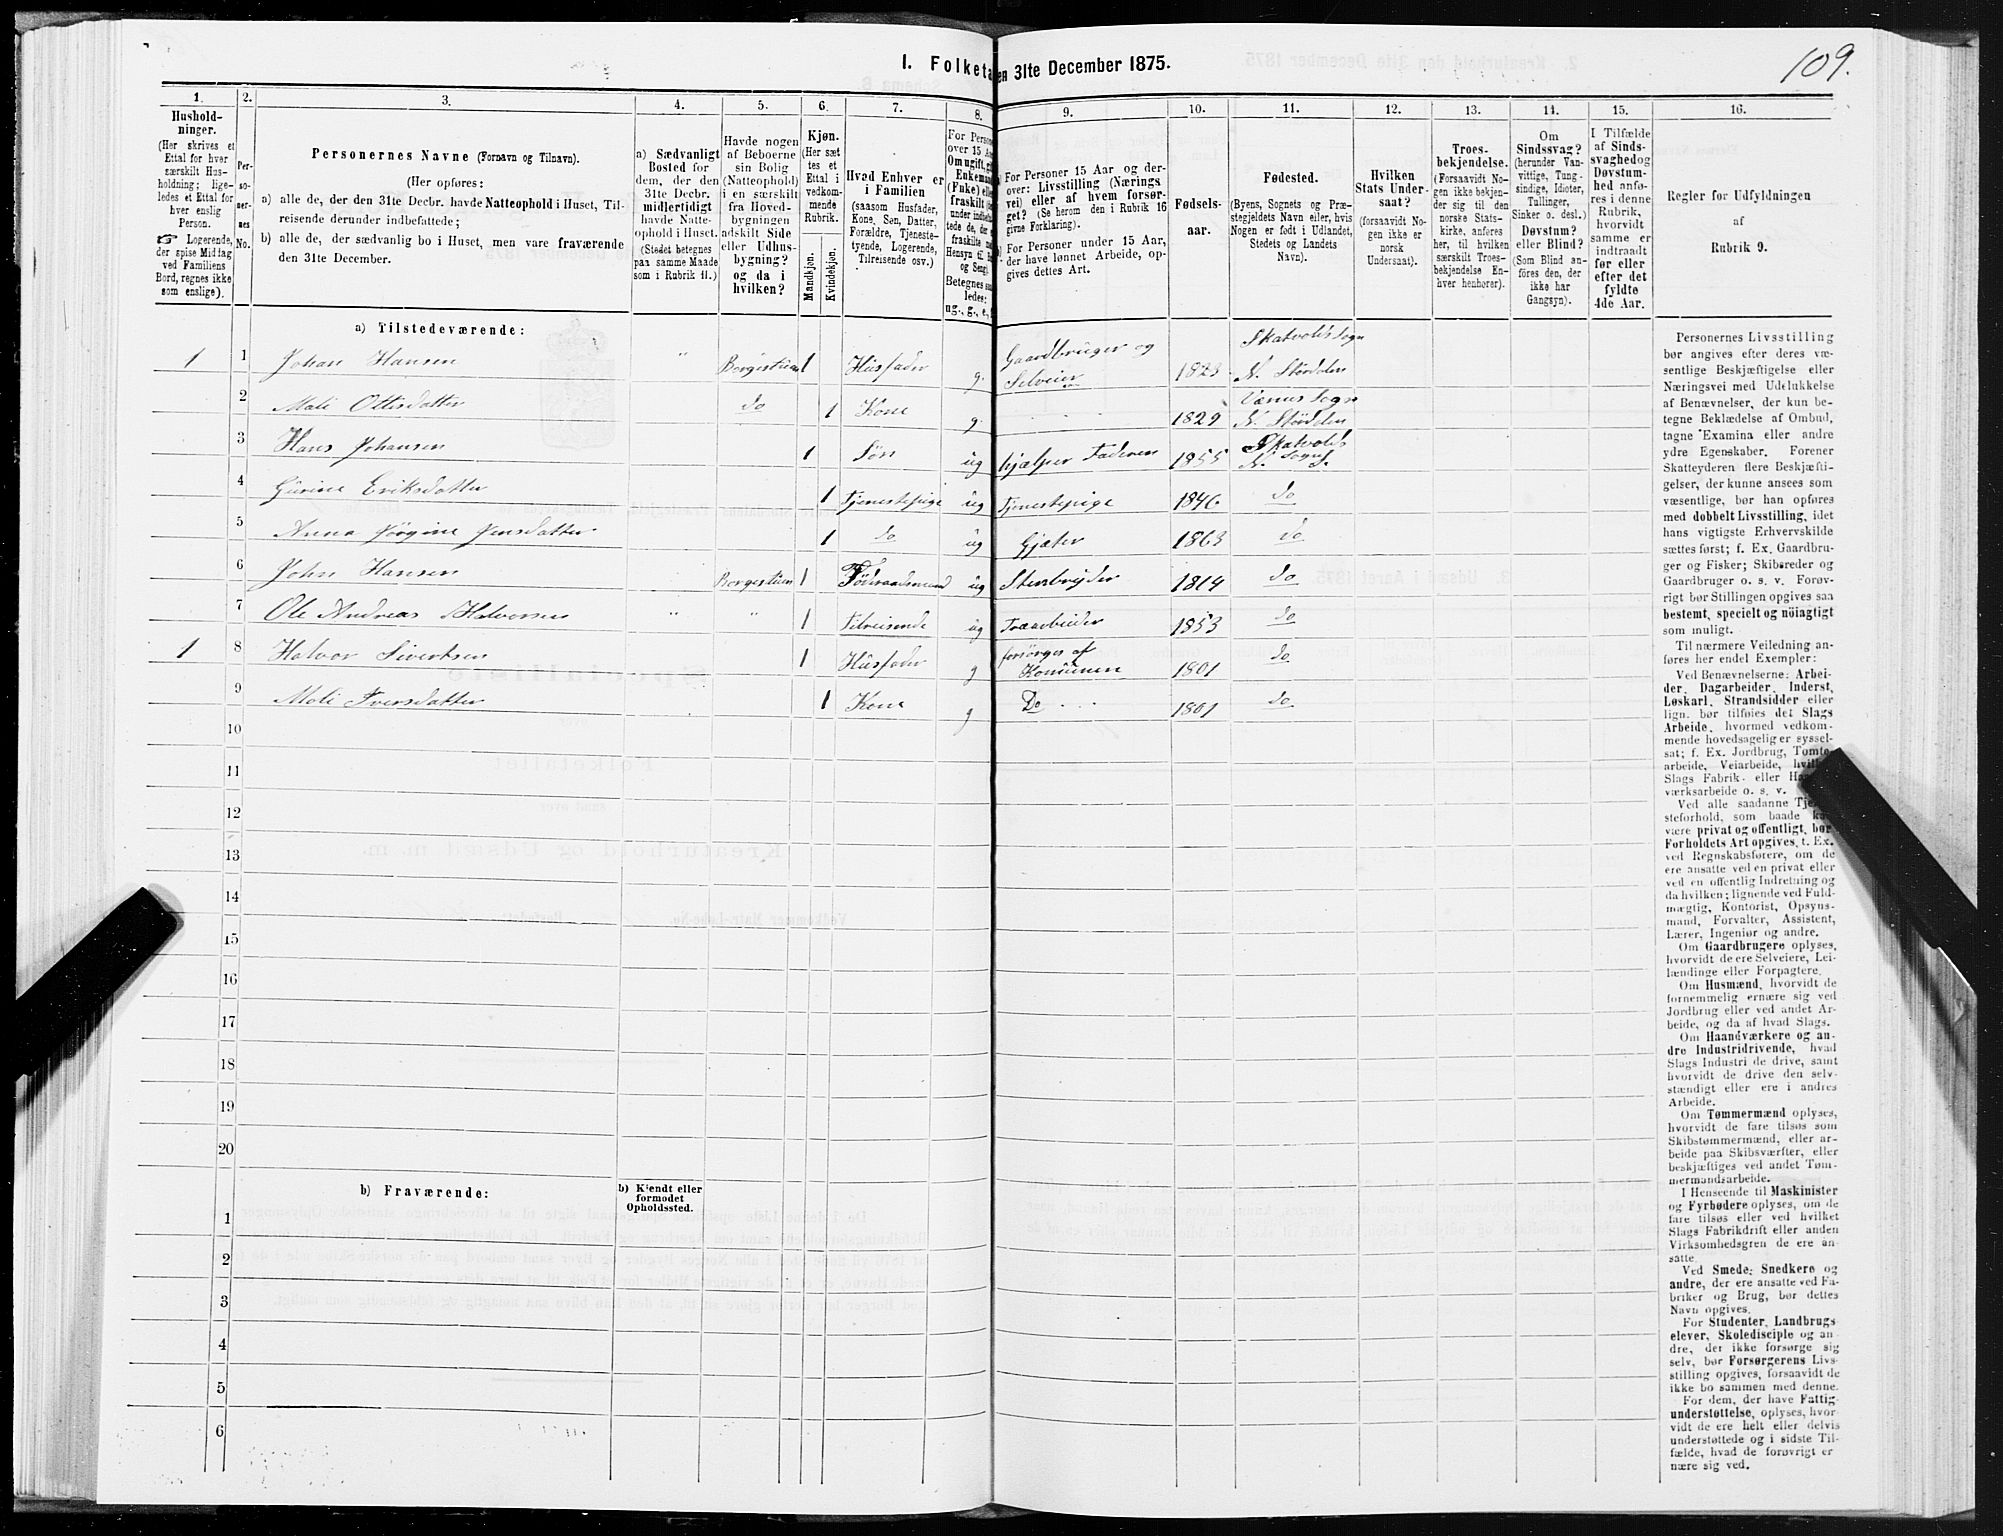 109.
I. Folketa en 31te December 1875.
1.
Hushold-
ninger.
(Her skrives et
Ettal for hver
særskilt Hus-
holdning; lige-
ledes et Ettal for
hver enslig
Person.
☞ Logerende,
der spise Middag
ved Familiens
Bord, regnes ikke
som enslige).
2.
Per-
so-
ner-
nes
No.
3.
Personernes Navne (Fornavn og Tilnavn).
(Her opføres:
a) alle de, der den 31te Decbr. havde Natteophold i Huset, Til-
reisende derunder indbefattede;
b) alle de, der sædvanlig bo i Huset, men vare fraværende
den 31te December.
4.
a) Sædvanligt
Bosted for
dem, der den
31te Decbr.
midlertidigt
havde Natte-
ophold i Huset.
(Stedet betegnes
paa samme Maade
som i Rubrik 11.)
5.
Havde nogen
af Beboerne
sin Bolig
(Natteophold)
i en særskilt
fra Hoved-
bygningen
adskilt Side
eller Udhus-
bygning?
og da i
hvilken?
6.
Kjøn.
(Her sæt-
tes et
Ettal i
vedkom-
mende
Rubrik.
Mandkjøn.
Kvindekjøn.
7.
Hvad Enhver er
i Familien
(saasom Husfader,
Kone, Søn, Datter,
Forældre, Tjeneste-
tyende, Logerende,
Tilreisende osv.)
8.
For Person
over 15 Aar
Om ugift, gif
Enkemand
(Enke) elle
fraskilt
under indbe
tede de
fraskilte
Hensyn til
og Seng).
Betegnes saa
ledes:
ug., g., e.,
9.
a) For Personer 15 Aar og der-
over: Livsstilling (Nærings
vei) eller af hvem forsør-
get? (Se herom den i Rubrik 16
givne Forklaring).
b) For Personer under 15 Aar,
der have lønnet Arbeide, op-
gives dettes Art.
10.
Fødsels-
aar.
11.
Fødested.
(Byens, Sognets og Præ-
stegjeldets Navn eller, hvis
Nogen er født i Udlandet,
Stedets og Landets
Navn).
12.
Hvilken
Stats Under-
saat?
(forsaavidt No-
gen ikke er
norsk
Undersaat).
13.
Troes-
bekjendelse.
(Forsaavidt No-
gen ikke bekjen-
der sig til den
norske Stats-
kirke, anføres
her, til hvilken
særskilt Troes-
bekjendelse En-
hver henhører).
14.
Om
Sindssvag?
(herunder Van-
vittige, Tung-
sindige, Idioter,
Tullinger,
Sinker o. desl.)
Døvstum?
eller Blind?
(Som Blind an-
føres den, der
ikke har
Gangsyn).
15.
I Tilfælde
af Sinds-
svaghedog
Døvstum-
hed anfø-
res i denne
Rubrik,
hvorvidt
samme er
indtraadt
før eller
efter det
fyldte
4de Aar.
16.
Regler for Udfyldningen
af
Rubrik 9.
a) Tilstedeværende:
1 1 Johan Hansen " Borgestuen 1 Husfader g. Gaardbruger og Selveier 1823 Skatvolds Sogn N. Størdden
2 Mali Ottisdatter do 1 Kone g. " " 1829 Værnes Sogn N. Størdden
3 Hans Johansen 1 Søn ug hjælper Faderen 1855 Skatvolds Sogn N. S.
4 Gurine Eriksdatter 1 Tjenestepige ug Tjenestepige 1846 do
5 Anna Jørgine Jensdatter 1 do ug Gjæter 1863 do
6 John Hansen Borgestuen 1 Föderaadsmand ug Stenbryder 1814 do
7 Ole Andreas Halvorsen " " 1 Tilreisende ug Træarbeider 1853 do
1 8 Halvor Sivertsen 1 Husfader g forsørges af Komunen 1801 do
9 Mali Iversdatter 1 Kone g Do 1801 do
10
11
12
13
14
15
16
17
18
19
20
b) Fraværende:
b) Kjendt eller
formodet
Opholdssted.
1
2
3
4
5
6
Personernes Livsstilling
bør angives efter deres væ-
sentlige Beskjæftigelse eller
Næringsvei med Udelukkelse
af Benævnelser, der kun be-
tegne Beklædelse af Ombud,
tagne Examina eller andre
ydre Egenskaber. Forener
Skatteyderen flere Beskjæfti-
gelser, der kunne ansees som
væsentlige, bør han opføres
med dobbelt Livsstilling, idet
hans vigtigste Erhvervskilde
sættes først; f. Ex. Gaardbru-
ger og Fisker; Skibsreder og
Gaardbruger o. s. v. Forøv-
rigt bør Stillingen opgives saa
bestemt, specielt og nöiagtigt
som muligt.
Til nærmere Veiledning an-
føres her endel Exempler:
Ved Benævnelserne: Arbei-
der, Dagarbeider, Inderst,
Løskarl, Strandsidder eller
lign. bør tilføies det Slags
Arbeide, hvormed vedkom-
mende hovedsagelig er syssel-
sat; f. Ex. Jordbrug, Tomte-
arbeide, Veiarbeide, hvilk
Slags Fabrik- eller Ha
værksarbeide o. s. v.
Ved alle saadanne Tje
steforhold, som baade ka
være privat og offentligt, bør
Forholdets Art opgives, t. Ex.
ved Regnskabsførere, om de
ere ansatte ved en privat eller
ved en offentlig Indretning og
da hvilken; lignende ved Fuld-
mægtig, Kontorist, Opsyns-
mand, Forvalter, Assistent,
Lærer, Ingeniør og andre.
Om Gaardbrugere oplyses,
hvorvidt de ere Selveiere, Lei-
lændinge eller Forpagtere.
Om Husmænd, hvorvidt de
fornemmelig ernære sig ved
Jordbrug eller ved andet Ar-
beide, og da af hvad Slags.
Om Haandværkere og an-
dre Industridrivende, hvad
Slags Industri de drive, samt
hvorvidt de drive den selv-
stændigt eller ere i andres
Arbeide.
Om Tømmermænd oplyses,
hvorvidt de fare tilsøs som
Skibstømmermænd, eller ar-
beide paa Skibsværfter, eller
beskjæftiges ved andet Tøm-
mermandsarbeide.
I Henseende til Maskinister
og Fyrbødere oplyses, om de
fare tilsøs eller ved hvilket
Slags Fabrikdrift eller anden
Virksomhedsgren de ere an-
satte.
Ved Smede, Snedkere og
andre, der ere ansatte ved Fa-
briker og Brug, bør dettes
Navn opgives.
For Studenter, Landbrugs-
elever, Skoledisciple og an-
dre, der ikke forsørge sig
selv, bør Forsørgerens Livs-
stilling opgives, forsaavidt de
ikke bo sammen med denne.
For dem, der have Fattig-
understøttelse, oplyses, hvor-
vidt de ere helt eller delvis
understøttede og i sidste Til-
fælde, hvad de forøvrigt er
nære sig ved.